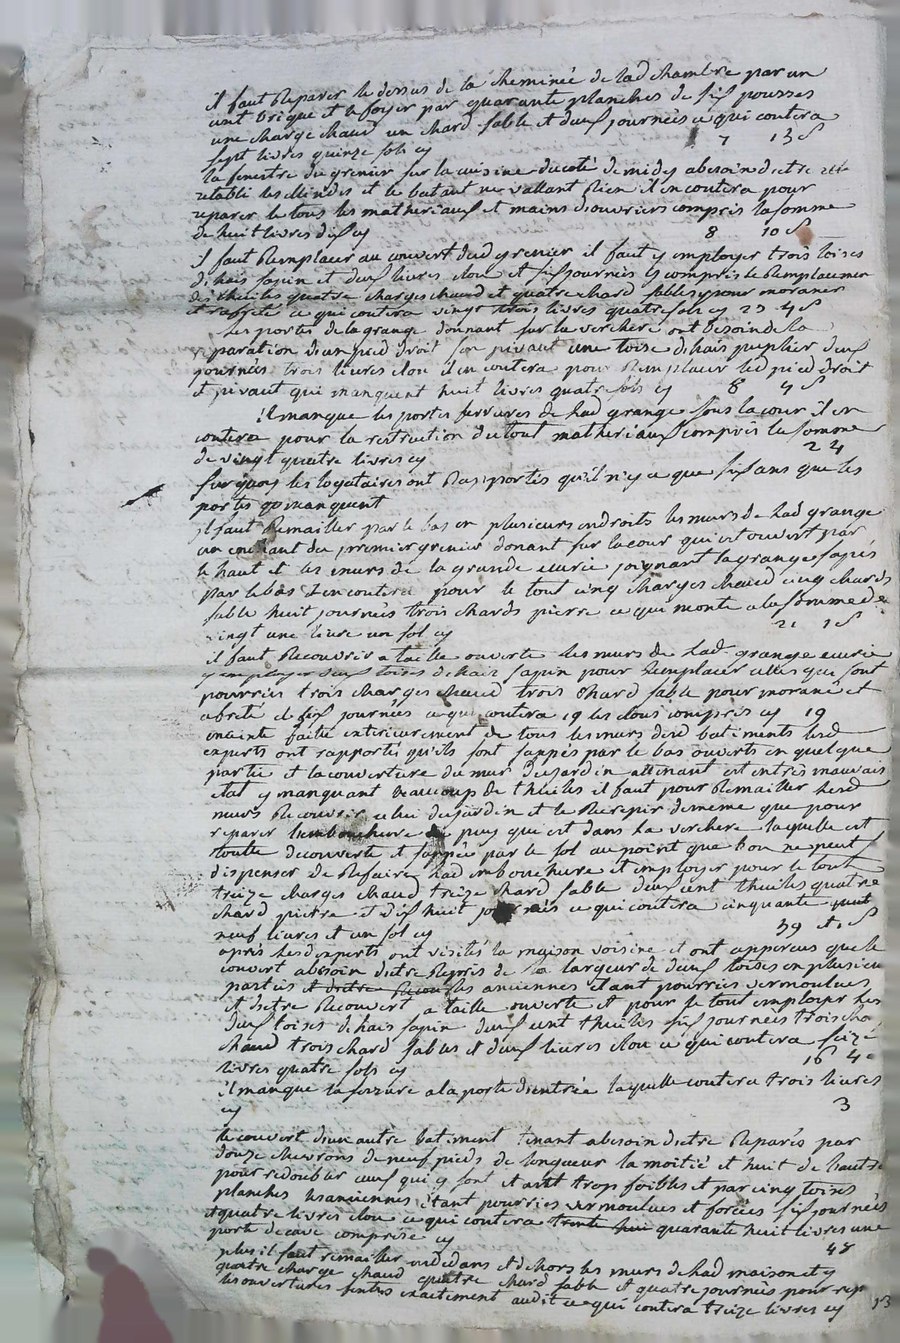 il faut Reparer le dessus de la cheminée de lad chambre par un
cent brique et le foyer par quarante planches de six pousses
une charge chaud un chard sable et deux journées ce qui coutera
sept livres quinze sols cy 7 15 s
la fenestre du grenier sur la cuisine ducoté de midy abesoin detre
retabli les et le batant ne vallant Rien il en coutera pour
reparer le tous les matheriaux et mains douvriers compris la somme
de huit livres dix cy 8 10 s
il faut Remplacer au couvert dud grenier il faut y employer trois toises
dehais sapin et deux livres clou et six journées y compris le Remplacemen
des thuiles quatre charges chaud et quatre chard sables pour moraner
et ce qui coutera vingt trois livres quatre sols cy 23 4 s
les portes de la grange donnant sur la verchere ont besoin de la
reparation dun pied droit son pivaut une toise dehais puplier deux
journées trois livres clou il en coutera pour Remplacer led pied droit
et pivaut qui manquent huit livres quatre sols cy 8 4 s
il manque les portes ferrures de lad grange sous la cour il en
coutera pour la du tout matheriaux compris la somme
de vingt quatre livres cy 24
sur quoy les locataires ont Rapportés qu'il n'y a que six ans que les
portes manquent
il faut Remailler par le bas en plusieurs endroits les murs de lad grange
un du premier grenier donant sur la cour qui est ouvert par
le haut et les murs de la grande ecurie joignant la grange sapés
par le bas il en coutera pour le tout cinq charges chaud cinq chards
sable huit journées trois chards pierre ce qui monte a la somme de
vingt une livre un sol cy 21 1 s
il faut Recouvrir a taille ouverte les murs de lad grange ecurie
y employer deux toises dehais sapin pour Remplacer celles qui sont
pourries trois charges chaud trois chard sable pour morané et
abrité et six journées ce qui coutera 19 les clous compris cy 19
faite exterieurement de tous les murs desd batiments lesd
experts ont rapportés qu'ils sont sappés par le bas ouverts en quelque
partie et la couverture du mur du jardin attenant est en très mauvais
etat y manquant beaucoup de thuiles il faut pour Remailler lesd
murs Recouvrir celui du jardin et le Recrepir de meme que pour
reparer lembouchure du puy qui est dans la verchere laquelle est
toutte decouverte et sappée par le sol au point que l'on ne peut
dispenser de Refaire lad embouchure et employer pour le tout
treize charges chaud treize chard sable deux cent thuiles quatre
chard pierre et dix huit journées ce qui coutera cinquante
neuf livres et un sol cy 59 et 1 s
après lesd experts ont visités la maison voisine et ont apperçus que le
couvert abesoin detre Repris de la largeur de deux toises en plusieu
parties et detre les anciennes etant pourries vermoulues
et detre Recouvert a taille ouverte et pour le tout employer les
deux toises dehais sapin deux cent thuiles six journées trois cha
chaud trois chard sables et deux livres clou ce qui coutera seize
livres quatre sols cy 16 4
il manque la serrure a la porte d'entrée laquelle coutera trois livres
cy 3
le couvert d'un autre batiment tenant abesoin detre Reparés par
douze chevrons de neuf pieds de longueur la moitié et huit de
pour redoubler ceux qui y sont et trop foibles et par cinq toises
planches les anciennes etant pourries vermoulues et six journées
et quatre livres clou ce qui coutera quarante huit livres une
porte de cave comprise cy 48
plus il faut remailler endedans et dehors les murs de lad maison et y
quatre charge chaud quatre chard sable et quatre journées pour
les ouvertures exactement audit ce qui coutera treize livres cy 13